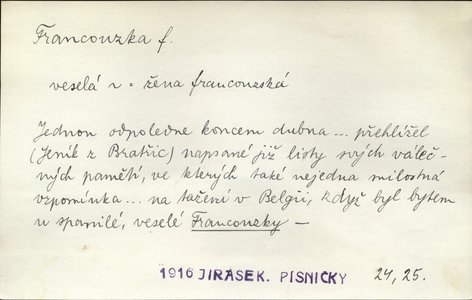 Francouzka f.
veselá n = žena francouzská
Jednou odpoledne koncem dubna... přehlížel
(Jeník z Bratřic) napsané již listy svých váleč-
ných pamětí, ve kterých také nejedna milostná
vzpomínka... na tažení v Belgii, když byl bytem
u spanilé, veselé Francouzky —
1916 JIRÁSEK. PÍSNIČKY 24, 25.